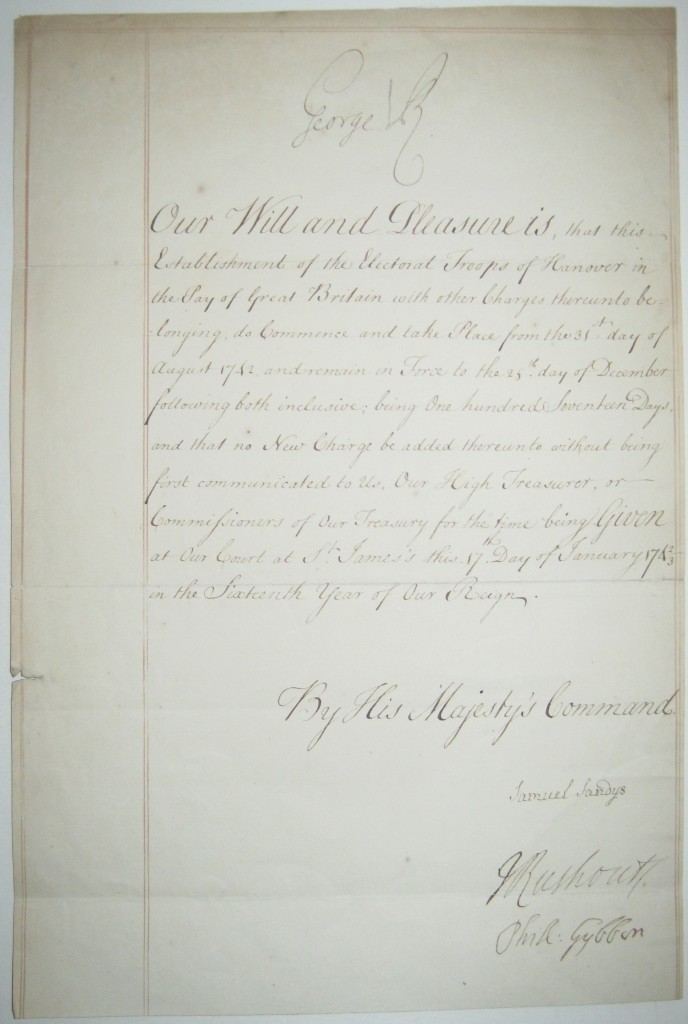 George R
Our Will and Pleasure is, that this
Establishment of the Electoral Troops of Hanover in
the Pay of Great Britain with other Charges thereunto be-
-longing, do Commence and take Place from the 31st day of
August 1742, and remain in Force to the 25th day of December
following both inclusive; being One hundred Seventeen Days,
and that no New Charge be added thereunto without being
first communicated to Us, Our High Treasurer, or
Commissioners of Our Treasury for the time being Given
at Our Court at St. James's this 17th Day of January 174 2/3
in the Sixteenth Year of Our Reign.
By His Majesty's Command
Samuel Sandys
J Rushout
Phil: Gybbon